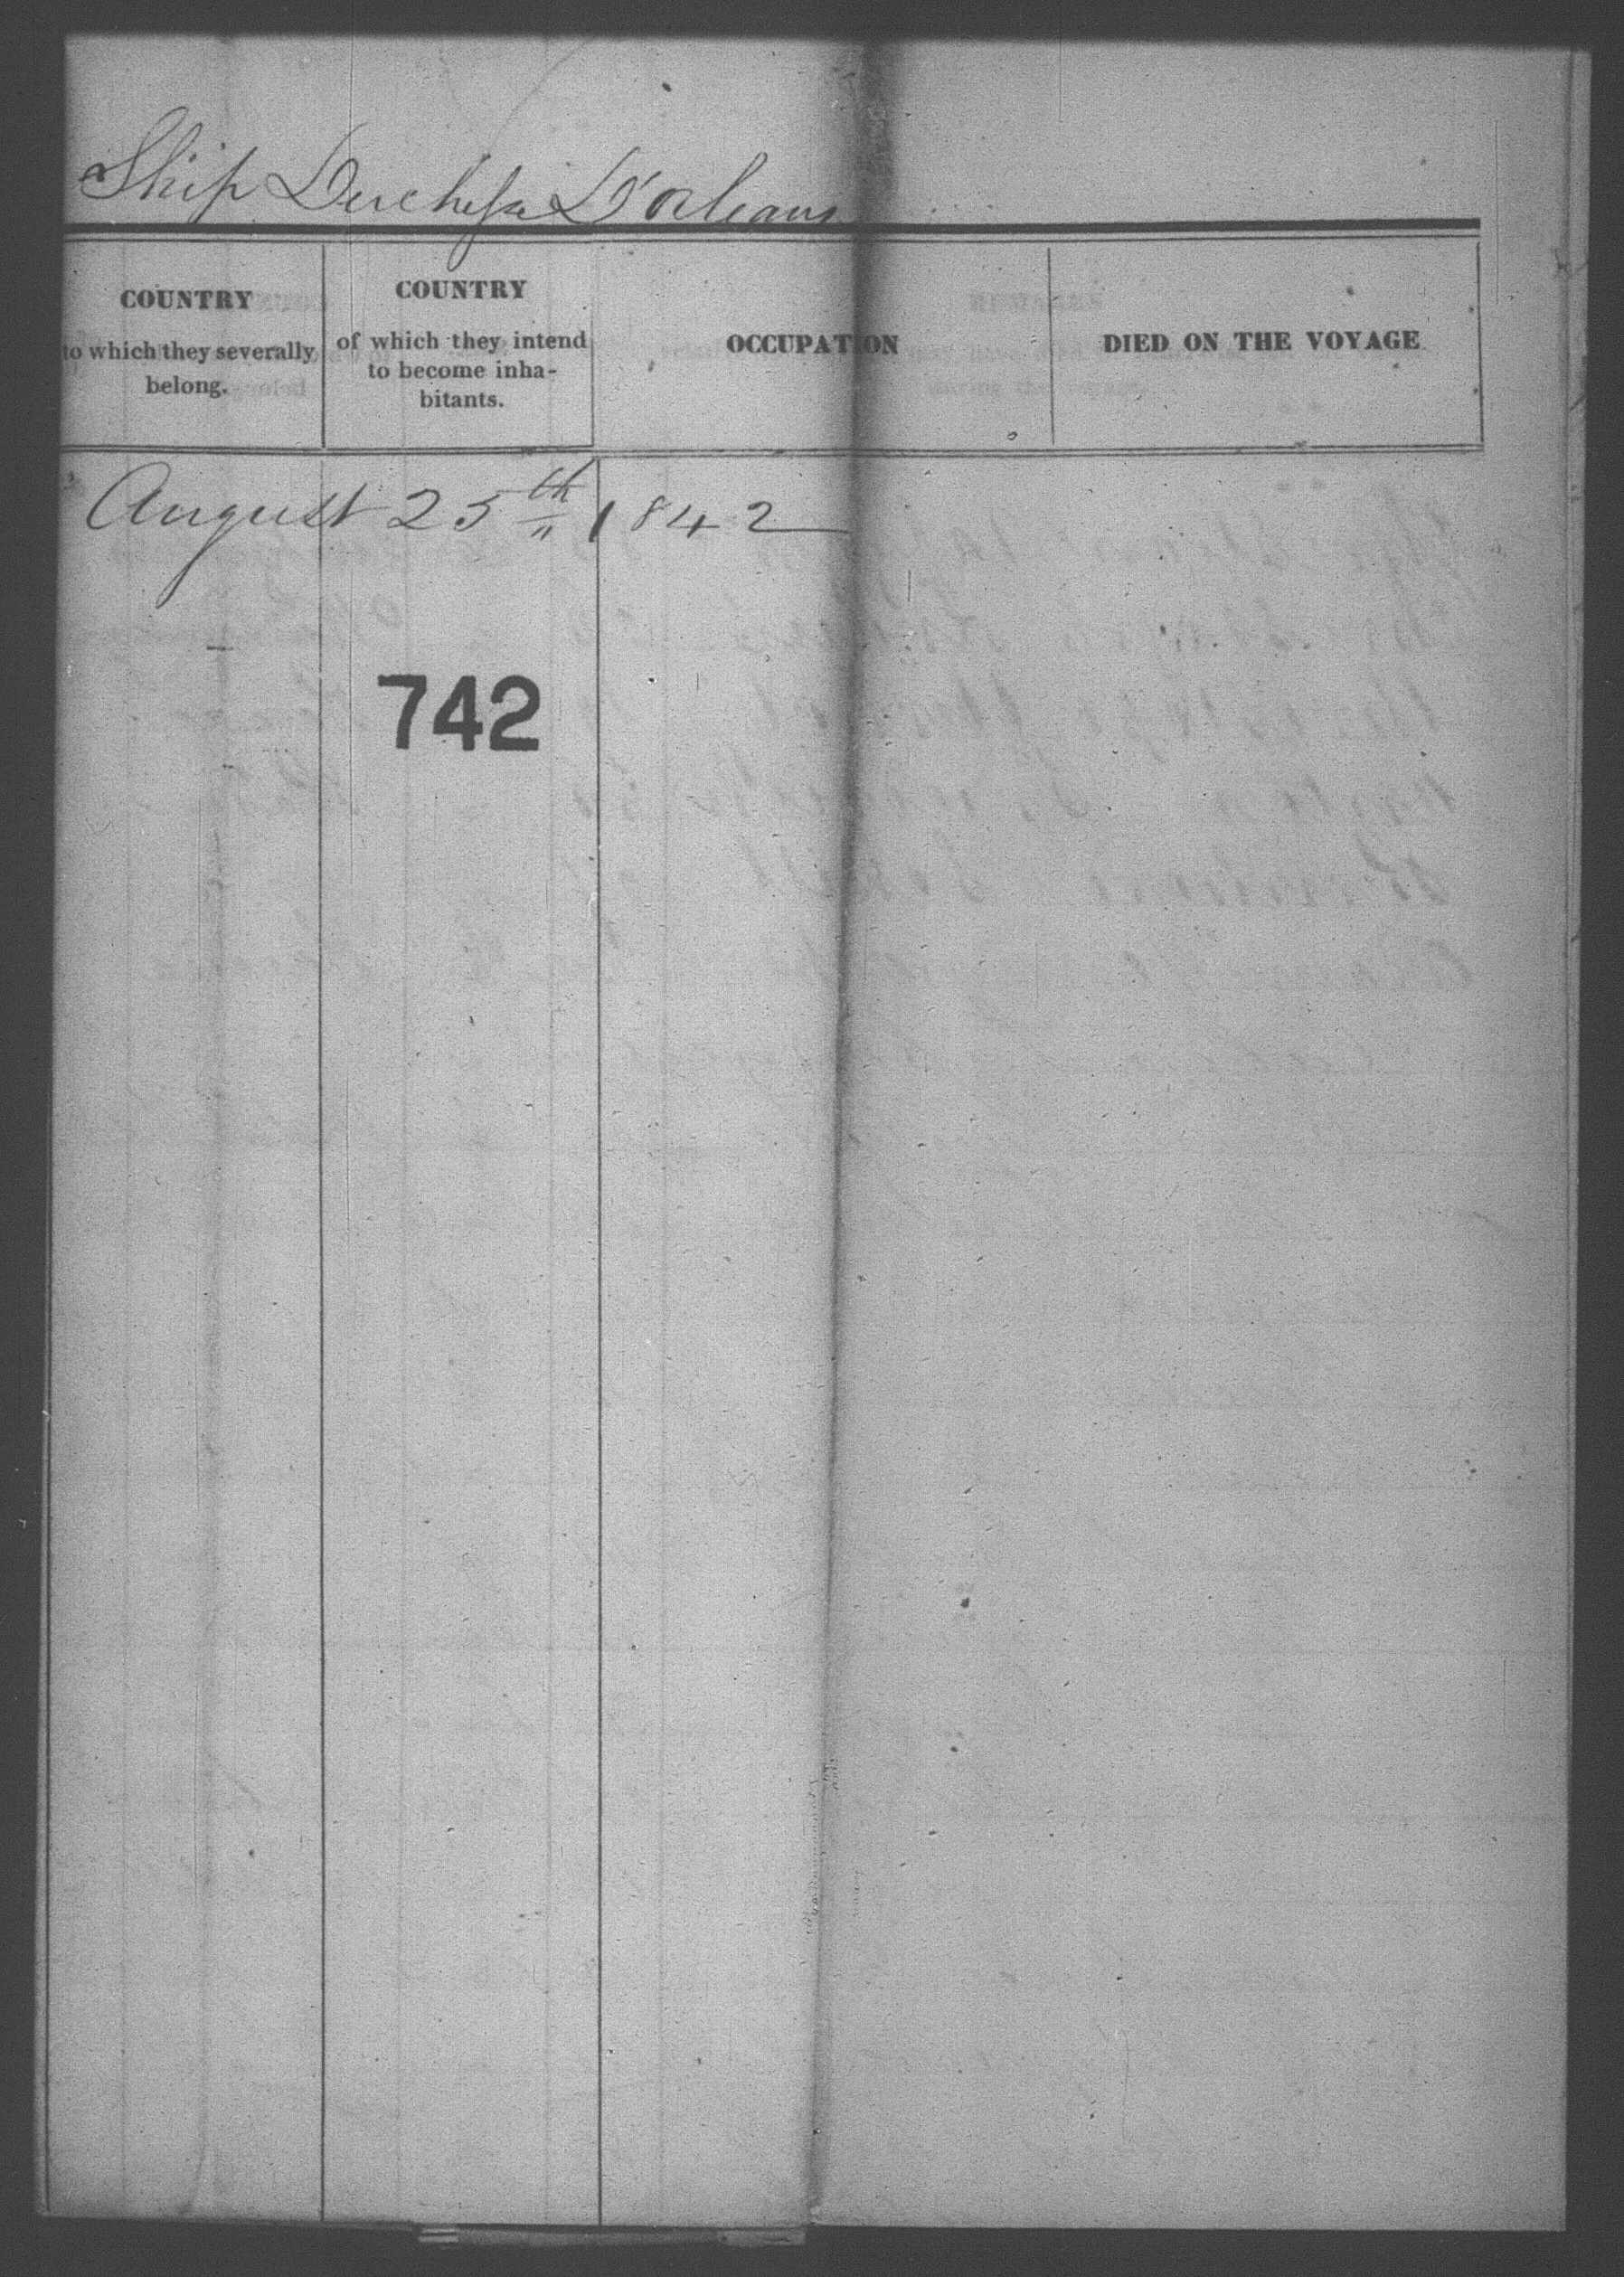 Ship Duchesse D'Orleans
COUNTRY
to which they severally
belong.
COUNTRY
of which they intend
to become inha-
bitants.
OCCUPATION
DIED ON THE VOYAGE
August 25th 1842
742